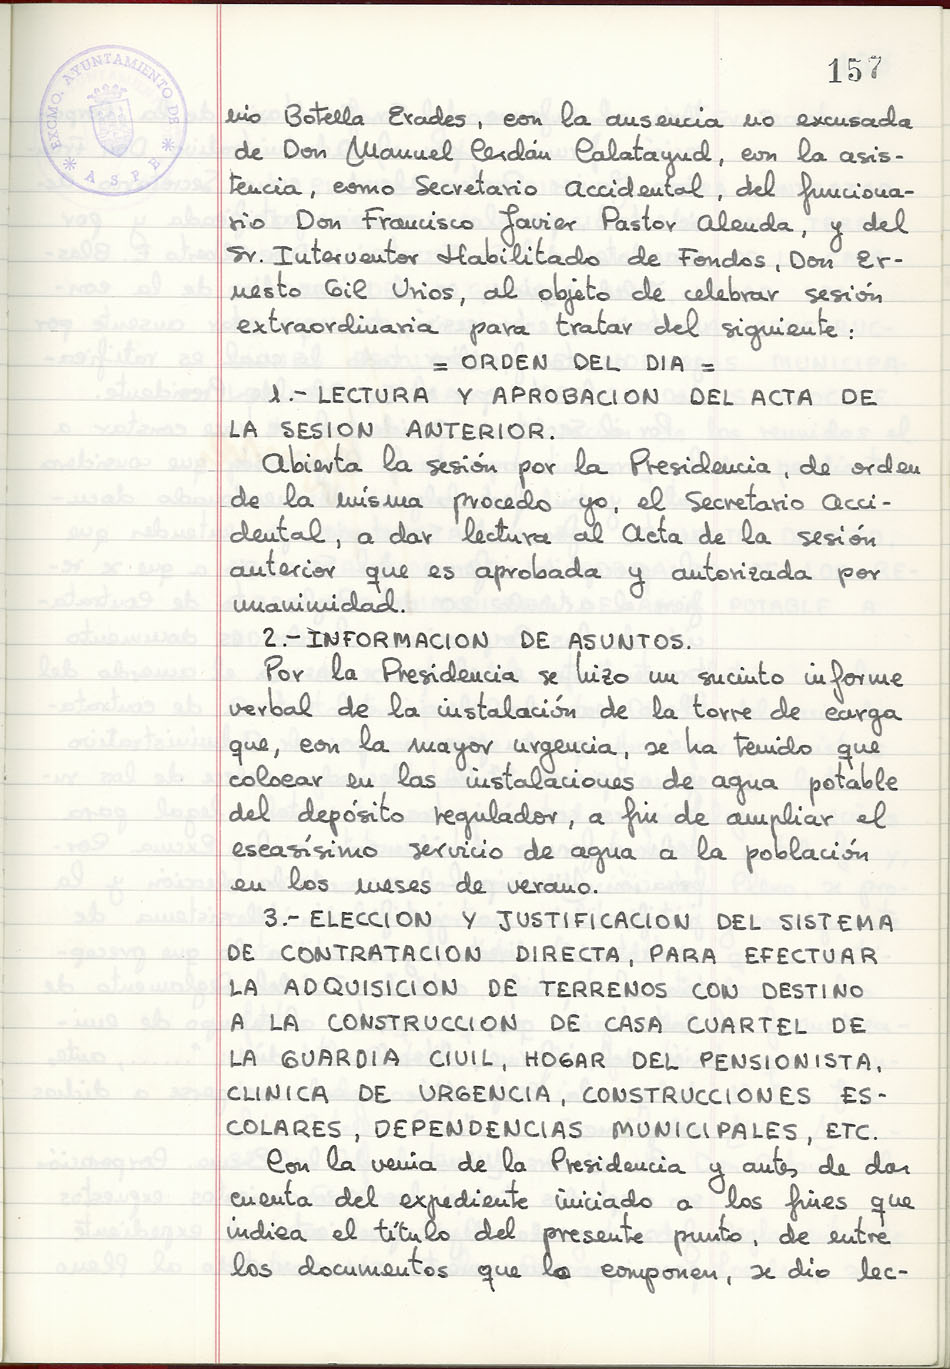 EXCMO. AYUNTAMIENTO DE
* ASPE *
157
nio Botella Erades, con la ausencia no excusada
de Don Manuel Cerdán Calatayud, con la asis-
tencia, como Secretario Accidental, del funciona-
rio Don Francisco Javier Pastor Alenda, y del
Sr. Interventor Habilitado de Fondos, Don Er-
nesto Gil Urios, al objeto de celebrar sesión
extraordinaria para tratar del siguiente:
= ORDEN DEL DIA =
1.- LECTURA Y APROBACION DEL ACTA DE
LA SESION ANTERIOR.
Abierta la sesión por la Presidencia, de orden
de la misma procedo yo, el Secretario Acci-
dental, a dar lectura al Acta de la sesión
anterior que es aprobada y autorizada por
unanimidad.
2.- INFORMACION DE ASUNTOS.
Por la Presidencia se hizo un sucinto informe
verbal de la instalación de la torre de carga
que, con la mayor urgencia, se ha tenido que
colocar en las instalaciones de agua potable
del depósito regulador, a fin de ampliar el
escasísimo servicio de agua a la población
en los meses de verano.
3.- ELECCION Y JUSTIFICACION DEL SISTEMA
DE CONTRATACION DIRECTA, PARA EFECTUAR
LA ADQUISICION DE TERRENOS CON DESTINO
A LA CONSTRUCCION DE CASA CUARTEL DE
LA GUARDIA CIVIL, HOGAR DEL PENSIONISTA,
CLINICA DE URGENCIA, CONSTRUCCIONES ES-
COLARES, DEPENDENCIAS MUNICIPALES, ETC.
Con la venia de la Presidencia y antes de dar
cuenta del expediente iniciado a los fines que
indica el título del presente punto, de entre
los documentos que lo componen, se dio lec-